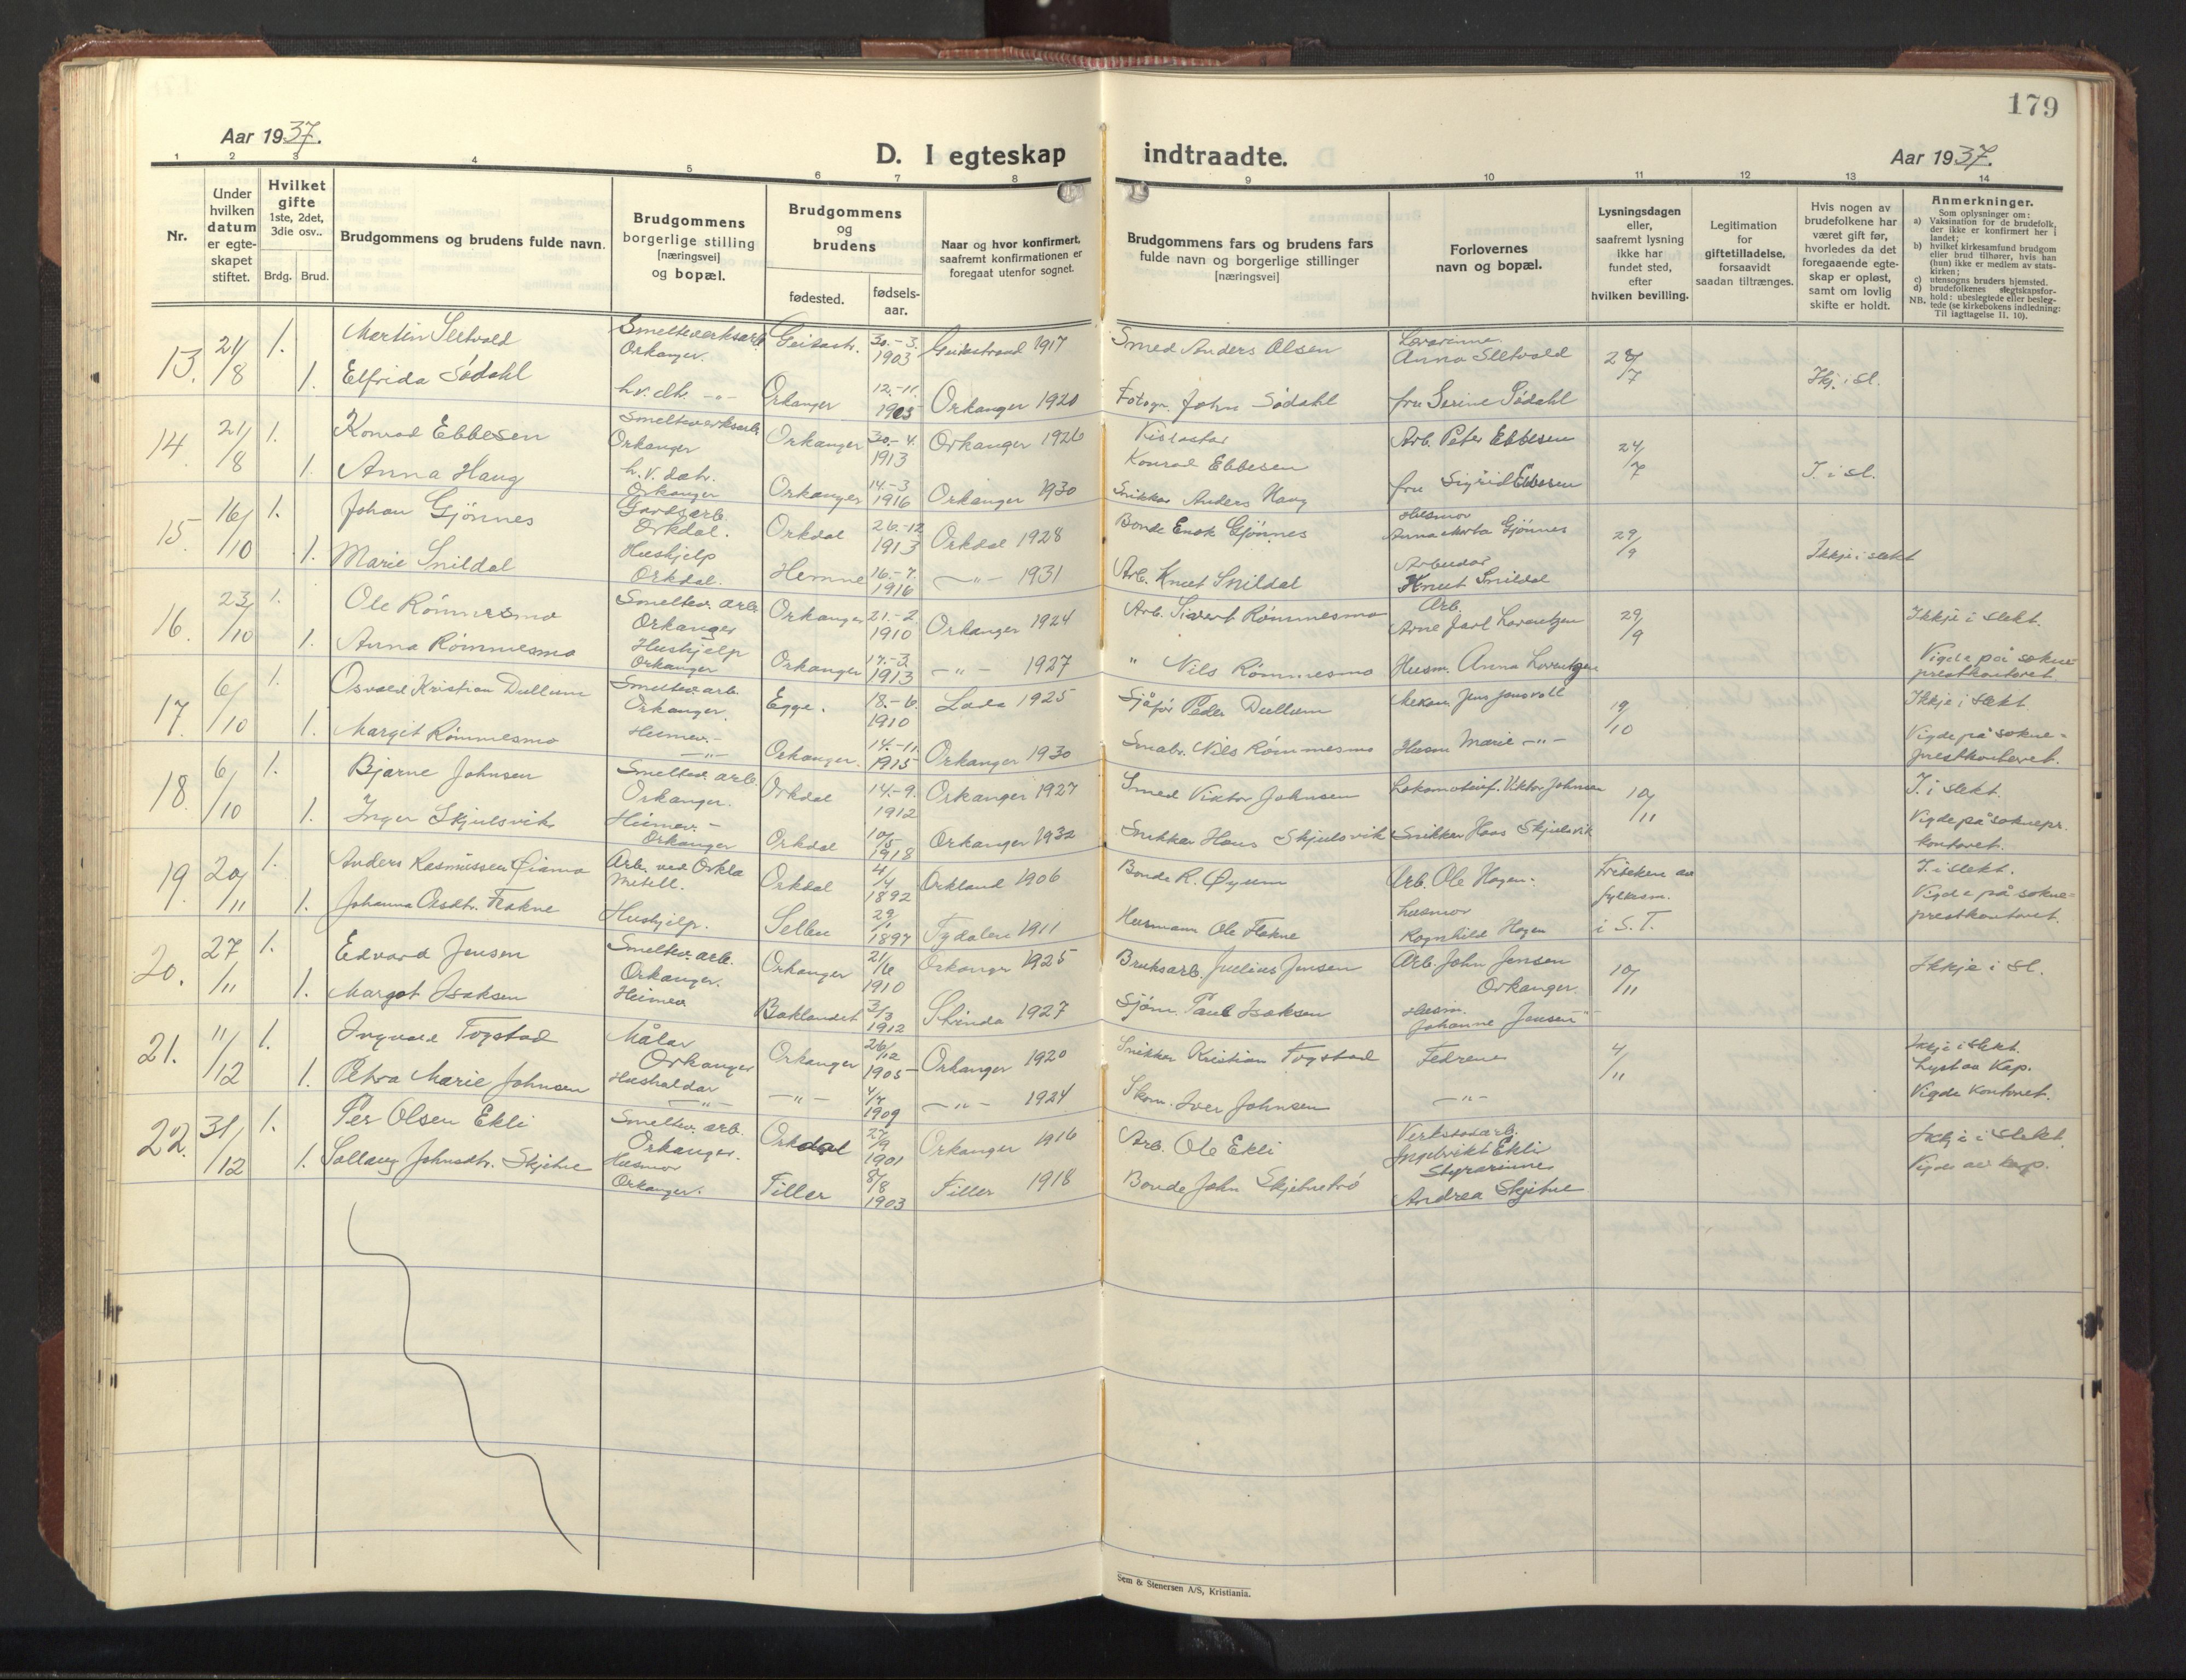 179
Aar 1937.
D. I egteskap indtraadte.
Aar 1937.
1 2 3 4 5 6 7 8 9 10 11 12 13 14
Nr.
Under hvilken datum er egteskapet stiftet.
Hvilket gifte 1ste, 2det, 3die osv..
Brdg. Brud.
Brudgommens og brudens fulde navn.
Brudgommens borgerlige stilling [næringsvei] og bopæl.
Brudgommens og brudens
fødested.
fødselsaar.
Naar og hvor konfirmert, saafremt konfirmationen er foregaat utenfor sognet.
Brudgommens fars og brudens fars fulde navn og borgerlige stillinger [næringsvei]
Forlovernes navn og bopæl.
Lysningsdagen eller, saafremt lysning ikke har fundet sted, efter hvilken bevilling.
Legitimation for giftetilladelse, forsaavidt saadan tiltrænges.
Hvis nogen av brudefolkene har været gift før, hvorledes da det foregaaende egteskap er opløst, samt om lovlig skifte er holdt.
Anmerkninger.
Som oplysninger om:
a) Vaksination for de brudefolk, der ikke er konfirmert her i landet;
b) hvilket kirkesamfund brudgom eller brud tilhører, hvis han (hun) ikke er medlem av statskirken;
c) utensogns bruders hjemsted.
d) brudefolkenes slegtskapsforhold: ubeslegtede eller beslegtede (se kirkebokens indledning: Til iagttagelse II, 10).
NB.
13. 21/8 1. Martin Sletvold Smelteverksarb. Orkanger. Geitastr. 30.-3. 1903 Geitastrand 1917 Smed Anders Olsen Anna Sletvold 24/7
1. Elfrida Sødahl Orkanger 12.-11. 1903 Orkanger 1920 Fotogr. John Sødahl fru Serine Sødahl Ikj. i sl.
14. 21/8 1. Konrad Ebbesen Smelteverksarb. Orkanger Orkanger 30.-4. 1913 Orkanger 1926 Konrad Ebbesen Arb. Peter Ebbesen 24/7
1. Anna Haug Orkanger Orkanger 14.-3 1916 Orkanger 1930 Snikkar Anders Haug fru Sigrid Ebbesen I. i sl.
15. 16/10 1. Johan Gjønnes Gardsarb. Orkdal. Orkdal 26.-12. 1913 Orkdal 1928 Bonde Enok Gjønnes Husmor Anna Marta Gjønnes 29/9
1. Marie Snildal Hushjelp Orkdal. Hemne 16.-7. 1916 —"— 1931 Arb. Knut Snildal Arbeidar Knut Snildal Ikkje i slekt
16. 23/10 1. Ole Rømmesmo Smeltev. arb. Orkanger Orkanger 21.-2. 1910 Orkanger 1924 Arb. Sivert Rømmesmo Arb. Arne Jarl Lorentzen 29/9 Ikkje i slekt.
1. Anna Rømmesmo Hushjelp Orkanger Orkanger 17.-3. 1913 —"— 1927 " Nils Rømmesmo Husm. Anna Lorentzen Vigde på sokneprestkontoret.
17. 6/10 1. Osvald Kristian Dullum Smeltev. arb. Orkanger. Egge. 18.-6. 1910 Lade 1925 Sjåfør Peder Dullum Mekan. Jens Jensvoll 19/10 Ikkje i slekt.
1. Margit Rømmesmo Heimev.— —"— Orkanger. 14.-11. 1915 Orkanger 1930 Nils Rømmesmo Husm Marie —"— Vigde på sokneprestkontoret.
18. 6/10 1. Bjarne Johnsen Smeltev. arb. Orkanger. Orkdal 14.-9. 1912 Orkanger 1927 Smed Viktor Johnsen Lokomotivf. Viktor Johnsen 10/11 I. i slekt.
1. Inger Skjulsvik Heimev.— Orkanger Orkdal 10/5 1918 Orkanger 1932 Snikkar Hans Skjulsvik Snikkar Hans Skjulsvik Vigde på soknepr. kontoret.
19. 20/11 1. Anders Rasmussen Øiamo Arb. ved Orkla Metall. Orkdal 4/4 1892 Orkland 1906 Bonde R. Øyum Arb. Ole Hagen. fylkesm. i S. T. I. i slekt.
1. Johanna Olsdtr. Flakne Hushjelp. Selbu 29/1 1897 Tydalen 1911 Husmann Ole Flakne husmor Ragnhild Hagen Vigde på sokneprestkontoret.
20. 27/11 1. Edvard Jensen Smeltev. arb. Orkanger. Orkanger 21/6 1910 Orkanger 1925 Bruksarb. Julius Jensen Arb. John Jensen Orkanger. 10/11 Ikkje i sl.
1. Margot Isaksen Heimev Baklandet 3/3 1912 Strinda 1927 Sjøm. Paul Isaksen Husm. Johanne Jensen "
21. 11/12 1. Ingvald Togstad Målar Orkanger Orkanger 26/12 1905 Orkanger 1920 Snikker Kristian Togstad Fedrene 4/11 Ikkje i slekt. Lyst av Kap.
1. Petra Marie Johnsen Hushaldar —"— —"— 4/4 1909 —"— 1924 Skom. Iver Johnsen —"— Vigde Kontoret.
22. 31/12 1. Per Olsen Ekli Smeltev. arb. Orkanger. Orkdal 27/9 1901 Orkanger 1916 Arb. Ole Ekli Verkstadarb. Ingebrikt Ekli Ikkje i slekt.
1. Sollaug Johnsdtr. Skjetne Husmor Orkanger. Tiller 8/8 1903 Tiller 1918 Bonde John Skjetnetrø Styrarinne Andrea Skjetne Vigde av kap.
Sem & Stenersen A/S, Kristiania.